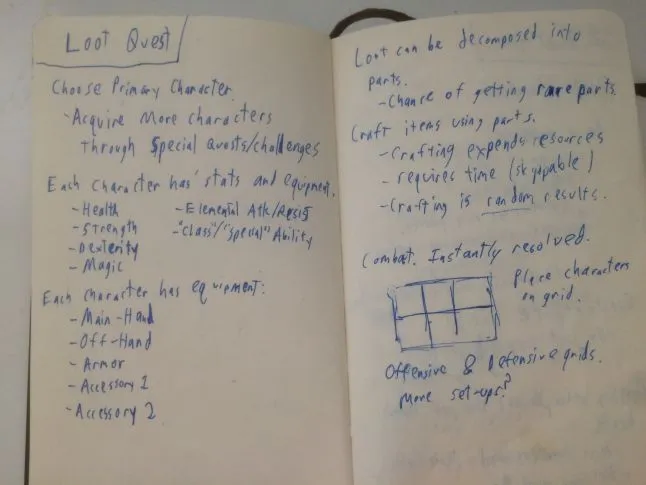 Loot Quest
Choose Primary Character
- Acquire More characters
through Special Quests/challenges
Each character has stats and equipment.
- Health
- Strength
- Dexterity
- Magic
- Elemental Atk/Resist
- "Class"/"Special" Ability
Each character has equipment:
- Main-Hand
- Off-Hand
- Armor
- Accessory 1
- Accessory 2
Loot can be decomposed into
parts.
- Chance of getting rare parts.
Craft items using parts.
- Crafting expends resources
- requires time (skippable)
- Crafting is random results.
Combat. Instantly resolved.
Place characters
on grid.
Offensive & Defensive grids.
More set-ups?